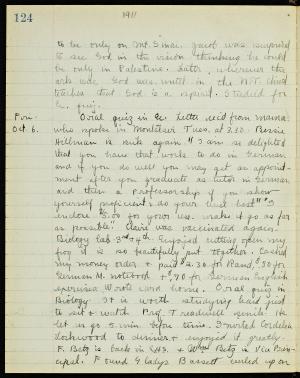 124
1911
to be only on Mt. Sinai. Jacob was surprised
to see God in the vision thinking he could
be only in Palestine. Later, wherever the
ark was God was, until in the N.T. Christ
teaches that God is a spirit. Studied for
Ec. quiz.
Fri. Oral quiz in Ec. Letter rec'd from mama
Oct 6. who spoke in Tues. at 2.30. Bessie
Hillman is sick again. "I am so delighted
that you have that work to do in German
and if you do well you may get an appoint-
ment after you graduate as tutor in German
and then a Professorship if you show
yourself proficient, do your level best" "I
endore $5.00 for your use. make it go as far
as possible." Claire was vaccinated again.
Biology Lab 3rd + 4th. Enjoyed cutting open my
frog it is so beautifully put together. Cashed
my money order + paid $2.30 for .50 for
German M. notebook + .90 for German English
Wrote card home. Oral quiz in
Biology. It is worth studying hard just
to sit + watch Prof. Treadwell smile. He
let us go 5 min before time. Invited Cordelia
Lockwood to dinner + enjoyed it greatly.
F. Betz is back in + Betz is Vice Prin-
cipal. Found Gladys Bassett curled up on